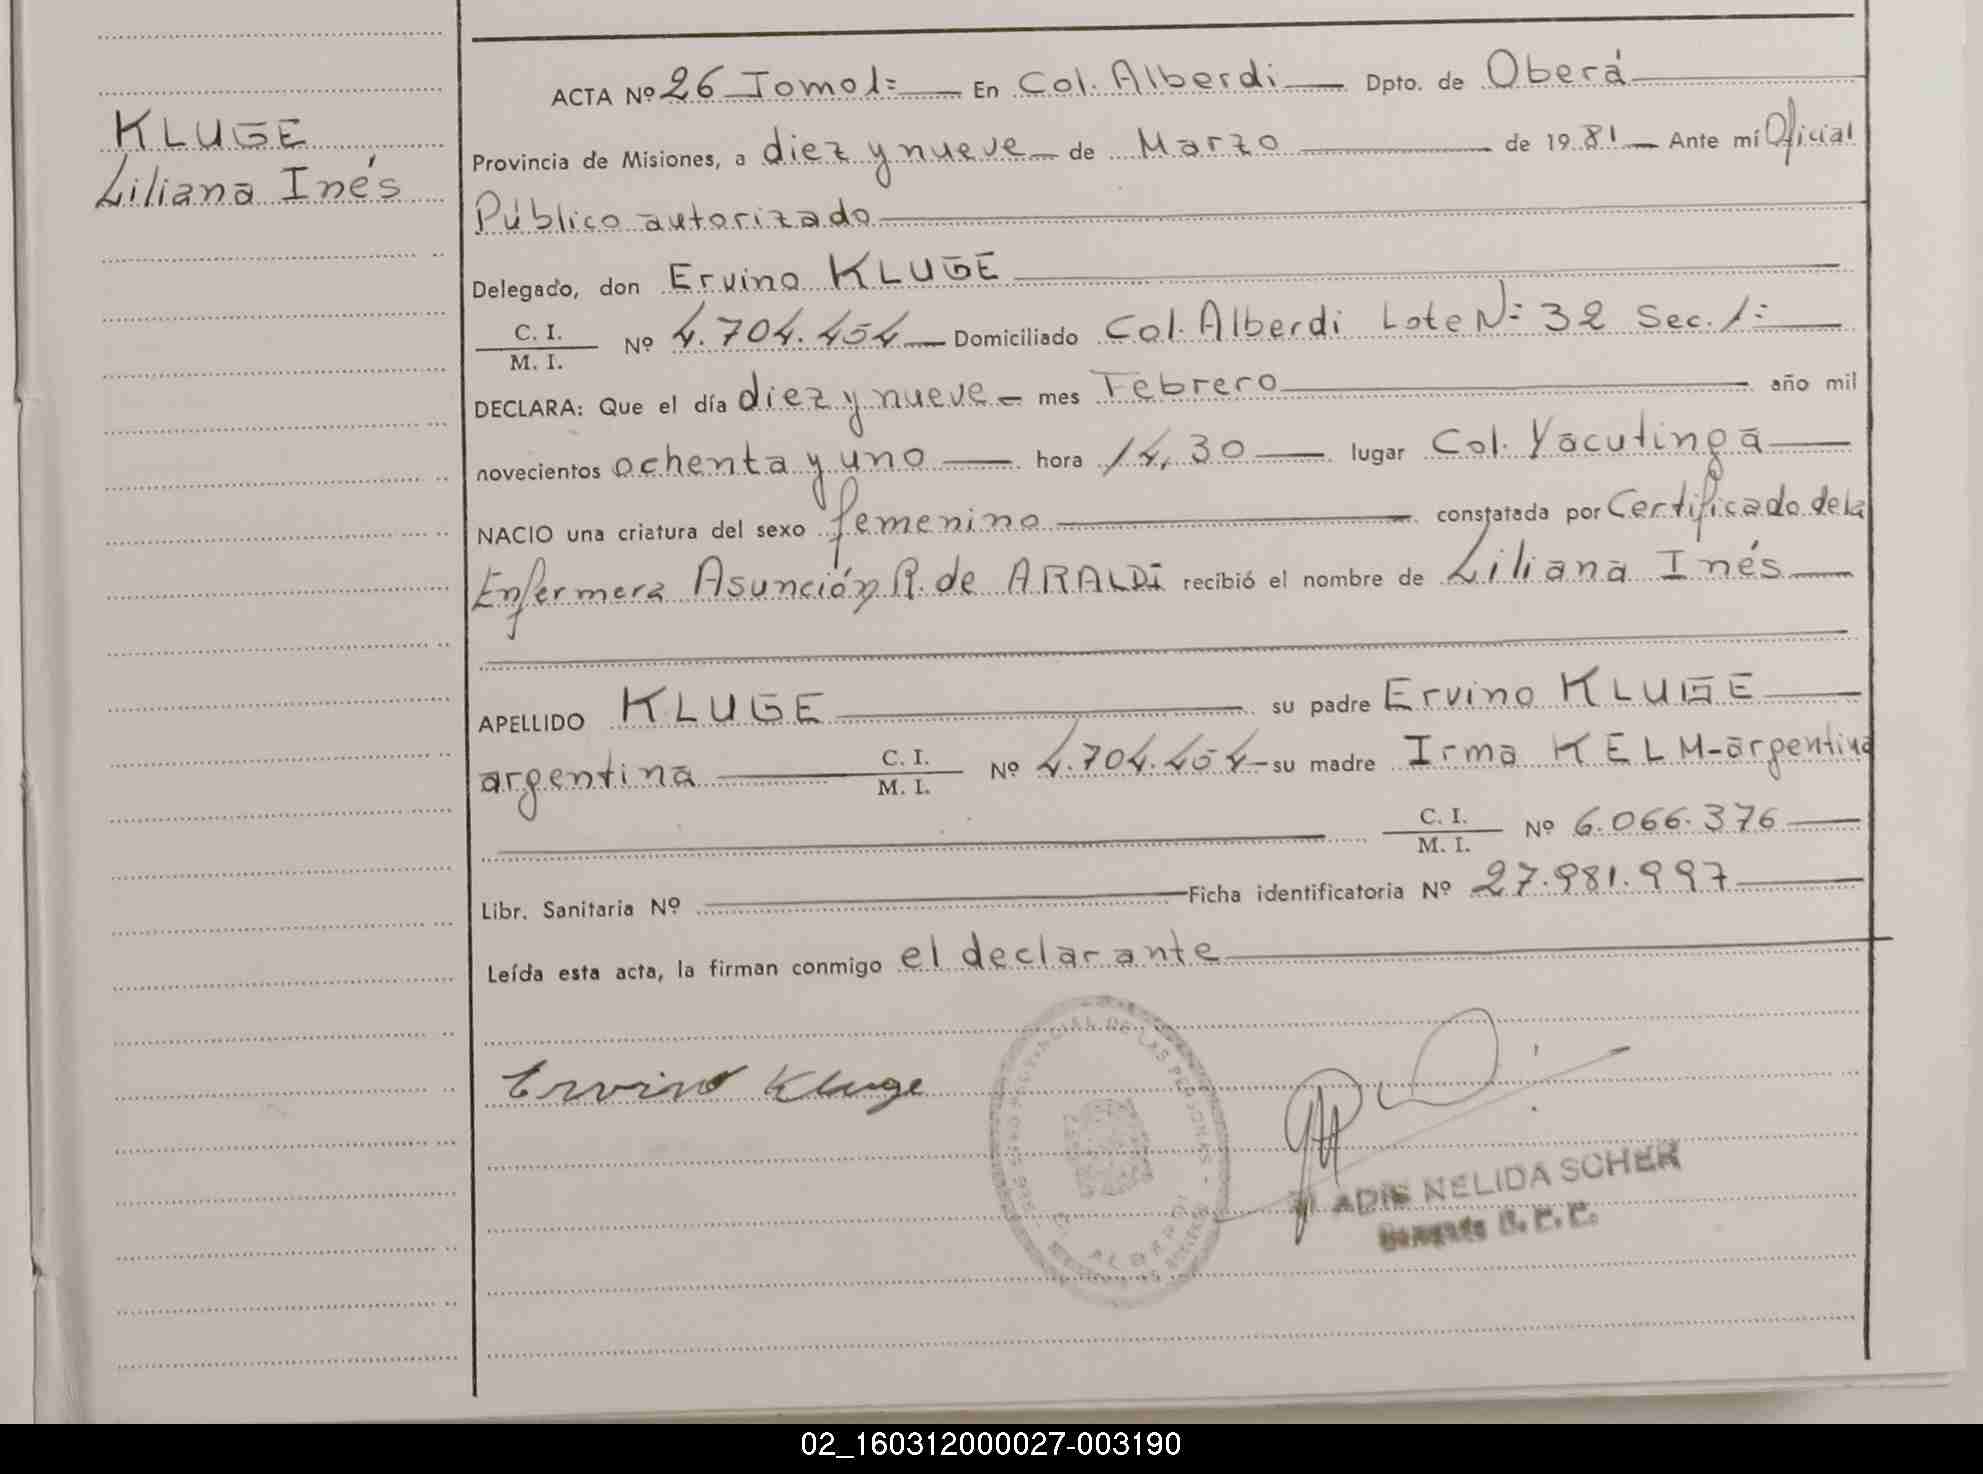 KLUGE
Liliana Inés
ACTA Nº 26 Tomo 1º En Col. Alberdi Dpto. de Oberá
Provincia de Misiones, a diez y nueve de Marzo de 1981 Ante mí Oficial
Público autorizado
Delegado, don Ervino KLUGE
C. I.
M. I. Nº 4.704.454 Domiciliado Col. Alberdi Lote Nº 32 Sec. 1º
DECLARA: Que el día diez y nueve mes Febrero año mil
novecientos ochenta y uno hora 14,30 lugar Col. Yacutinga
NACIO una criatura del sexo femenino constatada por Certificado de la
Enfermera Asunción R. de ARALDI recibió el nombre de Liliana Inés
APELLIDO KLUGE su padre Ervino KLUGE
argentina C. I.
M. I. Nº 4.704.454 su madre Irma KELM-argentina
C. I.
M. I. Nº 6.066.376
Libr. Sanitaria Nº Ficha identificatoria Nº 27.981.997
Leída esta acta, la firman conmigo el declarante
Ervino Kluge
DE LAS PERSONAS
NELIDA SCHER
02_160312000027-003190